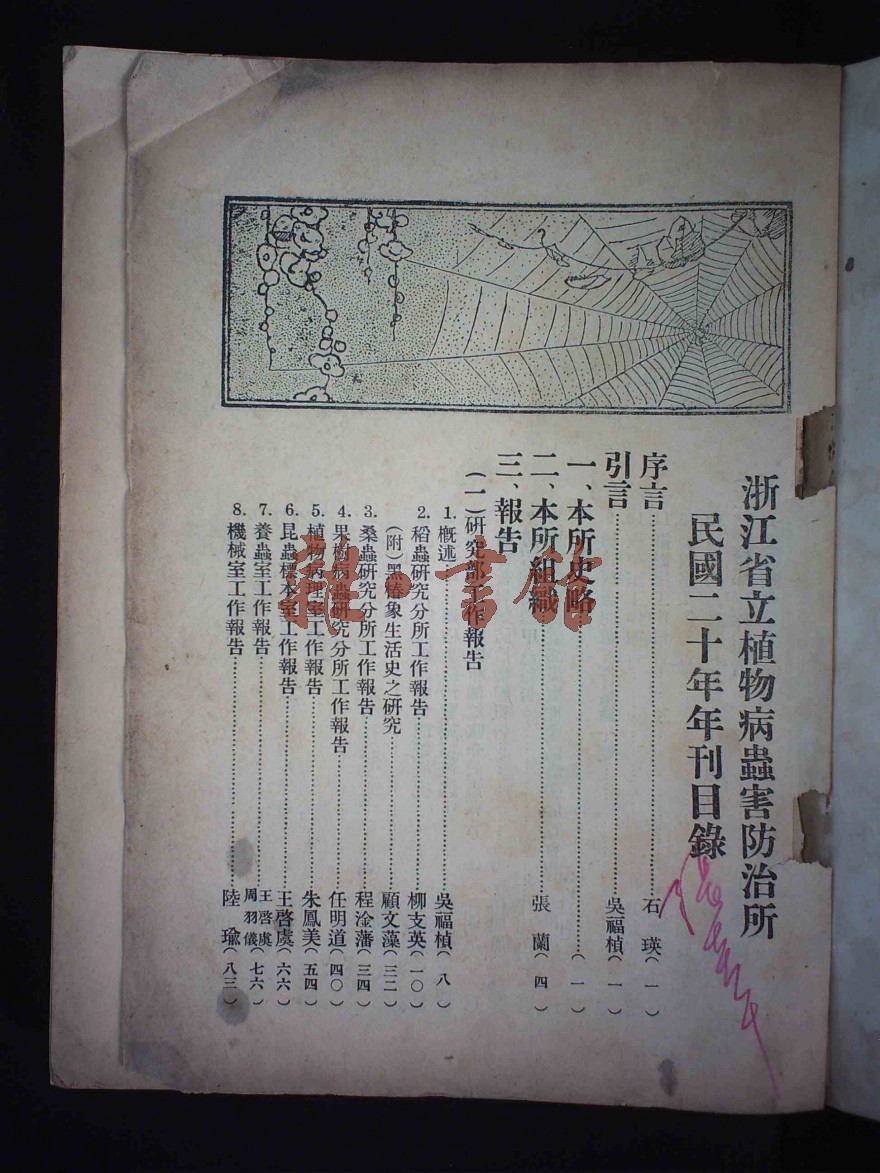 浙江省立植物病蟲害防治所
民國二十年年刊目錄
序言……石瑛(一)
引言……吳福楨(一)
一、本所史略……(一)
二、本所組織……張蘭(四)
三、報告
(一)研究部工作報告
1. 概述……吳福楨(八)
2. 稻蟲研究分所工作報告……柳支英(一〇)
(附)黑椿象生活史之研究……顧文藻(三二)
3. 桑蟲研究分所工作報告……程淦藩(三四)
4. 果樹病蟲研究分所工作報告……任明道(四〇)
5. 植物病理室工作報告……朱鳳美(五四)
6. 昆蟲標本室工作報告……王啓虞(六六)
7. 養蟲室工作報告……王啓虞 周羽儀(七六)
8. 機械室工作報告……陸瑜(八三)